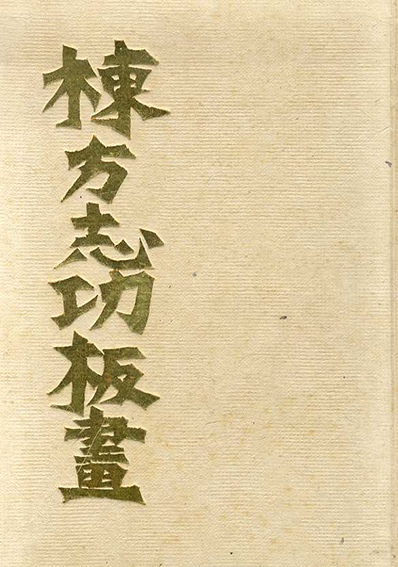 棟方志功板畫